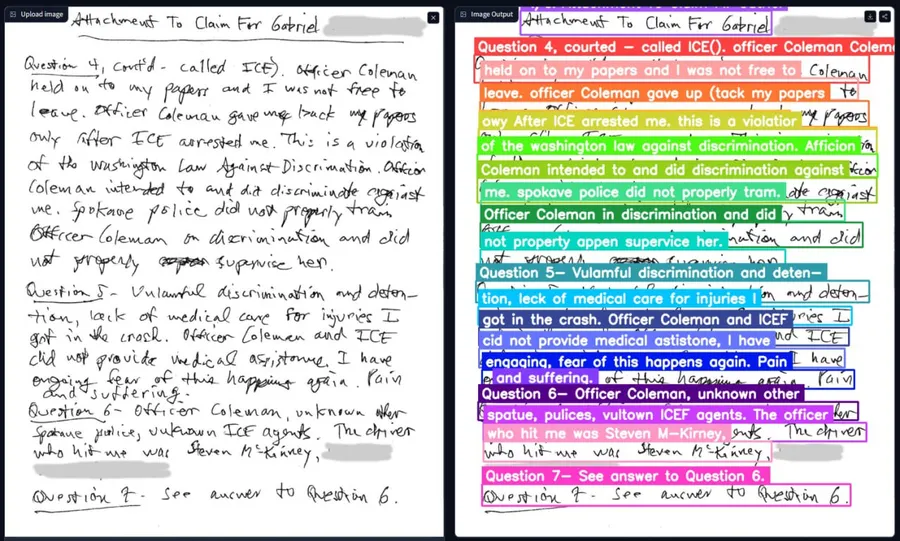 Upload image
Attachment To Claim For Gabriel
Question 4, cont'd - called ICE). Officer Coleman
held on to my papers and I was not free to
leave. Officer Coleman gave me back my papers
only after ICE arrested me. This is a violation
of the Washington Law Against Discrimination. Officer
Coleman intended to and did discriminate against
me. Spokane police did not properly train
Officer Coleman on discrimination and did
not properly supervise her.
Question 5 - Unlawful discrimination and deten-
tion, lack of medical care for injuries I
got in the crash. Officer Coleman and ICE
did not provide medical assistance. I have
ongoing fear of this happening again. Pain
and suffering.
Question 6 - Officer Coleman, unknown other
Spokane police, unknown ICE agents. The driver
who hit me was Steven McKinney,
Question 7 - See answer to Question 6.
Image Output
To Claim For Gabriel
Question 4, courted – called ICE(). officer Coleman Colem
held on to my papers and I was not free to
Coleman
leave. officer Coleman gave up (tack my papers
to
owy After ICE arrested me. this is a violatior
my papers
of the washington law against discrimination. Afficion
Coleman intended to and did discrimination against
me. spokave police did not properly tram.
ate against
Officer Coleman in discrimination and did
y train
not properly appen supervice her.
nation and did
Question 5– Vulamful discrimination and deten–
tion, leck of medical care for injuries I
got in the crash. Officer Coleman and ICEF
cid not provide medical astistone, I have
nd ICE
engaqing, fear of this happens again. Pain
have
and suffering.
of this happening again. Pain
Question 6– Officer Coleman, unknown other
spatue, pulices, vultown ICEF agents. The officer
who hit me was Steven M–Kirney,
ents. The driver
who hit me was Steven McKinney,
Question 7– See answer to Question 6.
Question 7 - See answer to Question 6.